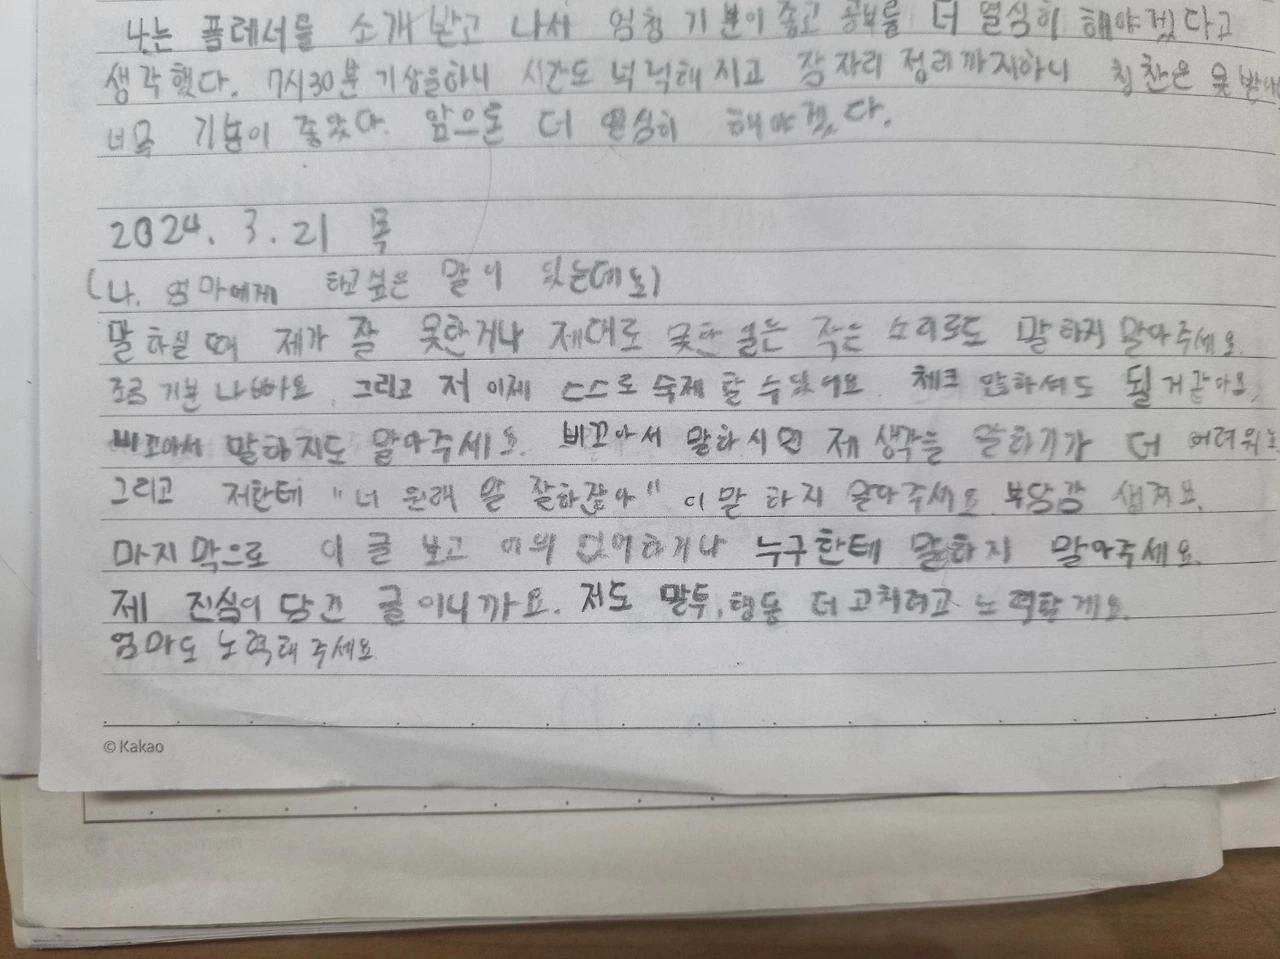 나는 플래너를 소개 받고 나서 엄청 기분이 좋고 공부를 더 열심히 해야겠다고
생각했다. 7시30분 기상을하니 시간도 넉넉해 지고 잠 자리 정리까지하니 칭찬은 못 받아
너무 기분이 좋았다. 앞으론 더 열심히 해야겠다.
2024. 3. 21 목
(나. 엄마에게 하고싶은 말이 있는데요)
말 하실 때 제가 잘 못한거나 제대로 못한 일은 작은 소리로도 말하지 말아주세요.
조금 기분 나빠요. 그리고 저 이제 스스로 숙제 할 수있어요. 체크 안하셔도 될거같아요.
비꼬아서 말하지도 말아주세요. 비꼬아서 말하시면 제 생각을 말하기가 더 어려워
그리고 저한테 "너 원래 말 잘하잖아" 이 말 하지 말아주세요. 부담감 생겨요.
마지막으로 이 글 보고 어의 없어하거나 누구한테 말하지 말아주세요.
제 진심이 담긴 글이니까요. 저도 말투, 행동 더 고치려고 노력할게요.
엄마도 노력해 주세요
© Kakao